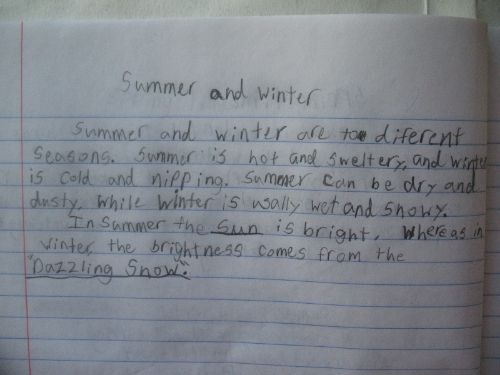 Summer and winter
Summer and winter are to diferent
seasons. Summer is hot and sweltery, and winter
is cold and nipping. Summer can be dry and
dusty, while winter is usally wet and snowy.
In Summer the Sun is bright, whereas in
winter, the brightness comes from the
"Dazzling Snow."